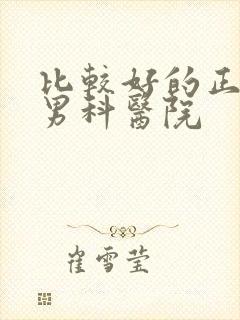 比較好的正
男科醫院
崔雪莹